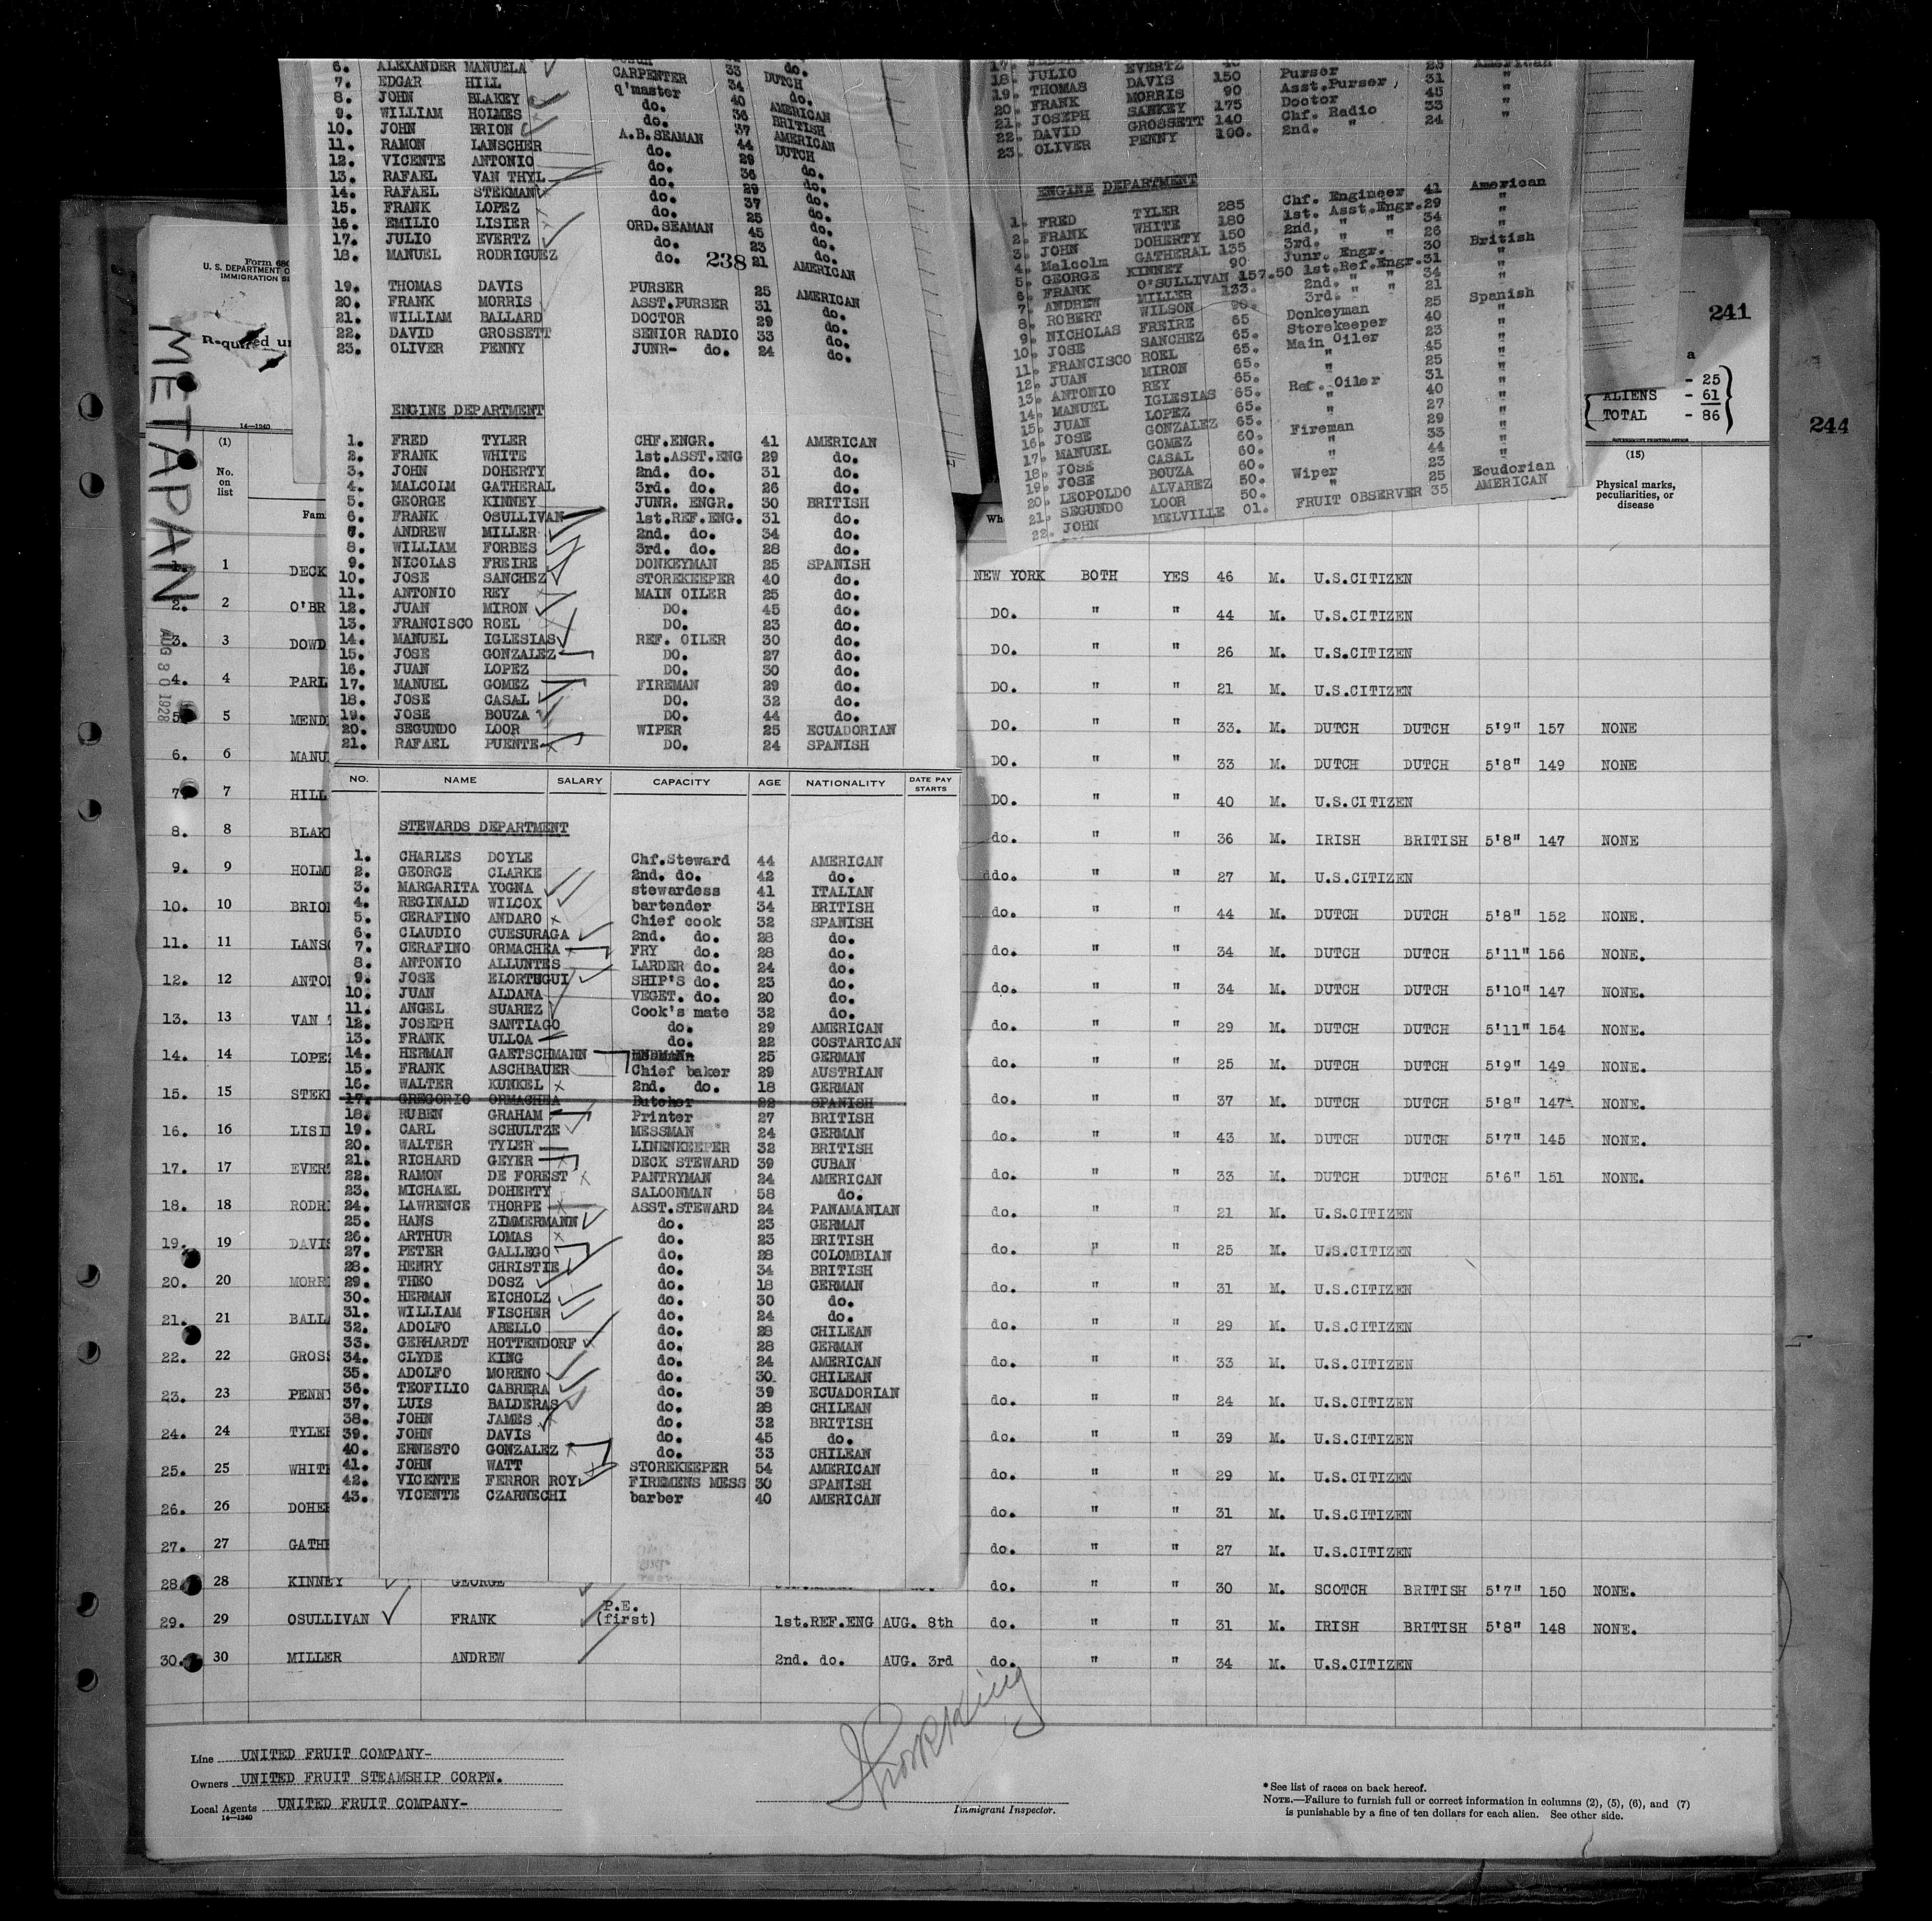 6. ALEXANDER MANUELA 33 do.
7. EDGAR HILL CARPENTER 34 DUTCH
8. JOHN BLAKEY q'master 40 do.
9. WILLIAM HOLMES do. 36 AMERICAN
10. JOHN BRION do. 37 BRITISH
11. RAMON LANSCHER A.B.SEAMAN 44 AMERICAN
12. VICENTE ANTONIO do. 29 DUTCH
13. RAFAEL VAN THYL do. 36 do.
14. RAFAEL STEKMAN do. 29 do.
15. FRANK LOPEZ do. 37 do.
16. EMILIO LISIER do. 25 do.
17. JULIO EVERTZ ORD.SEAMAN 45 do.
18. MANUEL RODRIGUEZ do. 23 do.
do. 238 21 AMERICAN
19. THOMAS DAVIS PURSER 25 AMERICAN
20. FRANK MORRIS ASST.PURSER 31 do.
21. WILLIAM BALLARD DOCTOR 29 do.
22. DAVID GROSSETT SENIOR RADIO 33 do.
23. OLIVER PENNY JUNR- do. 24 do.
ENGINE DEPARTMENT
1. FRED TYLER CHF.ENGR. 41 AMERICAN
2. FRANK WHITE 1st.ASST.ENG 29 do.
3. JOHN DOHERTY 2nd. do. 31 do.
4. MALCOLM GATHERAL 3rd. do. 26 do.
5. GEORGE KINNEY JUNR. ENGR. 30 BRITISH
6. FRANK OSULLIVAN 1st.REF.ENG. 31 do.
7. ANDREW MILLER 2nd. do. 34 do.
8. WILLIAM FORBES 3rd. do. 28 do.
9. NICOLAS FREIRE DONKEYMAN 25 SPANISH
10. JOSE SANCHEZ STOREKEEPER 40 do.
11. ANTONIO REY MAIN OILER 25 do.
12. JUAN MIRON DO. 45 do.
13. FRANCISCO ROEL DO. 23 do.
14. MANUEL IGLESIAS REF. OILER 30 do.
15. JOSE GONZALEZ DO. 27 do.
16. JUAN LOPEZ DO. 30 do.
17. MANUEL GOMEZ FIREMAN 29 do.
18. JOSE CASAL DO. 32 do.
19. JOSE BOUZA DO. 44 do.
20. SEGUNDO LOOR WIPER 25 ECUADORIAN
21. RAFAEL PUENTE DO. 24 SPANISH
NO. NAME SALARY CAPACITY AGE NATIONALITY DATE PAY STARTS
STEWARDS DEPARTMENT
1. CHARLES DOYLE Chf.Steward 44 AMERICAN
2. GEORGE CLARKE 2nd. do. 42 do.
3. MARGARITA YOGNA stewardess 41 ITALIAN
4. REGINALD WILCOX bartender 34 BRITISH
5. CERAFINO ANDARO Chief cook 32 SPANISH
6. CLAUDIO CUESURAGA 2nd. do. 28 do.
7. CERAFINO ORMACHEA FRY do. 28 do.
8. ANTONIO ALLUNTES LARDER do. 24 do.
9. JOSE ELORTEGUI SHIP'S do. 23 do.
10. JUAN ALDANA VEGET. do. 20 do.
11. ANGEL SUAREZ Cook's mate 32 do.
12. JOSEPH SANTIAGO do. 29 AMERICAN
13. FRANK ULLOA do. 22 COSTARICAN
14. HERMAN GAETSCHMANN 25 GERMAN
15. FRANK ASCHBAUER Chief baker 29 AUSTRIAN
16. WALTER KUNKEL 2nd. do. 18 GERMAN
17. GREGORIO ORMACHEA Butcher 22 SPANISH
18. RUBEN GRAHAM Printer 27 BRITISH
19. CARL SCHULTZE MESSMAN 24 GERMAN
20. WALTER TYLER LINENKEEPER 32 BRITISH
21. RICHARD GEYER DECK STEWARD 39 CUBAN
22. RAMON DE FOREST PANTRYMAN 24 AMERICAN
23. MICHAEL DOHERTY SALOONMAN 58 do.
24. LAWRENCE THORPE ASST.STEWARD 24 PANAMANIAN
25. HANS ZIMMERMANN do. 23 GERMAN
26. ARTHUR LOMAS do. 23 BRITISH
27. PETER GALLEGO do. 28 COLOMBIAN
28. HENRY CHRISTIE do. 34 BRITISH
29. THEO DOSZ do. 18 GERMAN
30. HERMAN EICHOLZ do. 30 do.
31. WILLIAM FISCHER do. 24 do.
32. ADOLFO ABELLO do. 28 CHILEAN
33. GERHARDT HOTTENDORF do. 28 GERMAN
34. CLYDE KING do. 24 AMERICAN
35. ADOLFO MORENO do. 30 CHILEAN
36. TEOFILIO CABRERA do. 39 ECUADORIAN
37. LUIS BALDERAS do. 28 CHILEAN
38. JOHN JAMES do. 32 BRITISH
39. JOHN DAVIS do. 45 do.
40. ERNESTO GONZALEZ do. 33 CHILEAN
41. JOHN WATT STOREKEEPER 54 AMERICAN
42. VICENTE FERROR ROY FIREMENS MESS 30 SPANISH
43. VICENTE CZARNECHI barber 40 AMERICAN
17. EVERTZ 25 American
18. JULIO DAVIS 150 Purser 31 "
19. THOMAS MORRIS 90 Asst.Purser 45 "
20. FRANK SANKEY 175 Doctor 33 "
21. JOSEPH GROSSETT 140 Chf. Radio 24 "
22. DAVID PENNY 100. 2nd. "
23. OLIVER
ENGINE DEPARTMENT
1. FRED TYLER 285 Chf. Engineer 41 American
2. FRANK WHITE 180 1st. Asst.Engr. 29 "
3. JOHN DOHERTY 150 2nd. " " 34 "
4. Malcolm GATHERAL 135 3rd. " " 26 "
5. GEORGE KINNEY 90 Junr. Engr. 30 British
6. FRANK O'SULLIVAN 157.50 1st.Ref.Engr. 31 "
7. ANDREW MILLER 133. 2nd. " " 34 "
8. ROBERT WILSON 90. 3rd. " " 21 "
9. NICHOLAS FREIRE 65 Donkeyman 25 Spanish
10. JOSE SANCHEZ 65. Storekeeper 40 "
11. FRANCISCO ROEL 65. Main Oiler 23 "
12. JUAN MIRON 65. " 45 "
13. ANTONIO REY 65. " 25 "
14. MANUEL IGLESIAS 65. Ref. Oiler 31 "
15. JUAN LOPEZ 65. " 40 "
16. JOSE GONZALEZ 65. " 27 "
17. MANUEL GOMEZ 60. Fireman 29 "
18. JOSE CASAL 60. " 33 "
19. JOSE BOUZA 60. " 44 "
20. LEOPOLDO ALVAREZ 50. Wiper 23 "
21. SEGUNDO LOOR 50. " 25 Ecudorian
22. JOHN MELVILLE 01. FRUIT OBSERVER 35 AMERICAN
241
244
- 25
ALIENS - 61
TOTAL - 86
GOVERNMENT PRINTING OFFICE
Form 680
U. S. DEPARTMENT O
IMMIGRATION SE
Required un
METAPAN
AUG 30 1928
14-1240
(1) No. on list
Fam
(15) Physical marks, peculiarities, or disease
1. 1 DECK NEW YORK BOTH YES 46 M. U.S.CITIZEN
2. 2 O'BR DO. " " 44 M. U.S.CITIZEN
3. 3 DOWD DO. " " 26 M. U.S.CITIZEN
4. 4 PARL DO. " " 21 M. U.S.CITIZEN
5. 5 MEND DO. " " 33. M. DUTCH DUTCH 5'9" 157 NONE
6. 6 MANU DO. " " 33 M. DUTCH DUTCH 5'8" 149 NONE
7. 7 HILL DO. " " 40 M. U.S.CITIZEN
8. 8 BLAK do. " " 36 M. IRISH BRITISH 5'8" 147 NONE
9. 9 HOLM ddo. " " 27 M. U.S.CITIZEN
10. 10 BRIO do. " " 44 M. DUTCH DUTCH 5'8" 152 NONE.
11. 11 LANSC do. " " 34 M. DUTCH DUTCH 5'11" 156 NONE.
12. 12 ANTO do. " " 34 M. DUTCH DUTCH 5'10" 147 NONE.
13. 13 VAN T do. " " 29 M. DUTCH DUTCH 5'11" 154 NONE.
14. 14 LOPEZ do. " " 25 M. DUTCH DUTCH 5'9" 149 NONE.
15. 15 STEK do. " " 37 M. DUTCH DUTCH 5'8" 147 NONE.
16. 16 LISI do. " " 43 M. DUTCH DUTCH 5'7" 145 NONE.
17. 17 EVER do. " " 33 M. DUTCH DUTCH 5'6" 151 NONE.
18. 18 RODR do. " " 21 M. U.S.CITIZEN
19. 19 DAVIS do. " " 25 M. U.S.CITIZEN
20. 20 MORR do. " " 31 M. U.S.CITIZEN
21. 21 BALL do. " " 29 M. U.S.CITIZEN
22. 22 GROSS do. " " 33 M. U.S.CITIZEN
23. 23 PENNY do. " " 24 M. U.S.CITIZEN
24. 24 TYLER do. " " 39 M. U.S.CITIZEN
25. 25 WHITE do. " " 29 M. U.S.CITIZEN
26. 26 DOHE do. " " 31 M. U.S.CITIZEN
27. 27 GATH do. " " 27 M. U.S.CITIZEN
28. 28 KINNEY GEORGE do. " " 30 M. SCOTCH BRITISH 5'7" 150 NONE.
29. 29 OSULLIVAN FRANK P.E. (first) 1st.REF.ENG AUG. 8th do. " " 31 M. IRISH BRITISH 5'8" 148 NONE.
30. 30 MILLER ANDREW 2nd. do. AUG. 3rd do. " " 34 M. U.S.CITIZEN
Line UNITED FRUIT COMPANY-
Owners UNITED FRUIT STEAMSHIP CORPN.
Local Agents UNITED FRUIT COMPANY-
14-1240
Immigrant Inspector.
* See list of races on back hereof.
NOTE.—Failure to furnish full or correct information in columns (2), (5), (6), and (7)
is punishable by a fine of ten dollars for each alien. See other side.